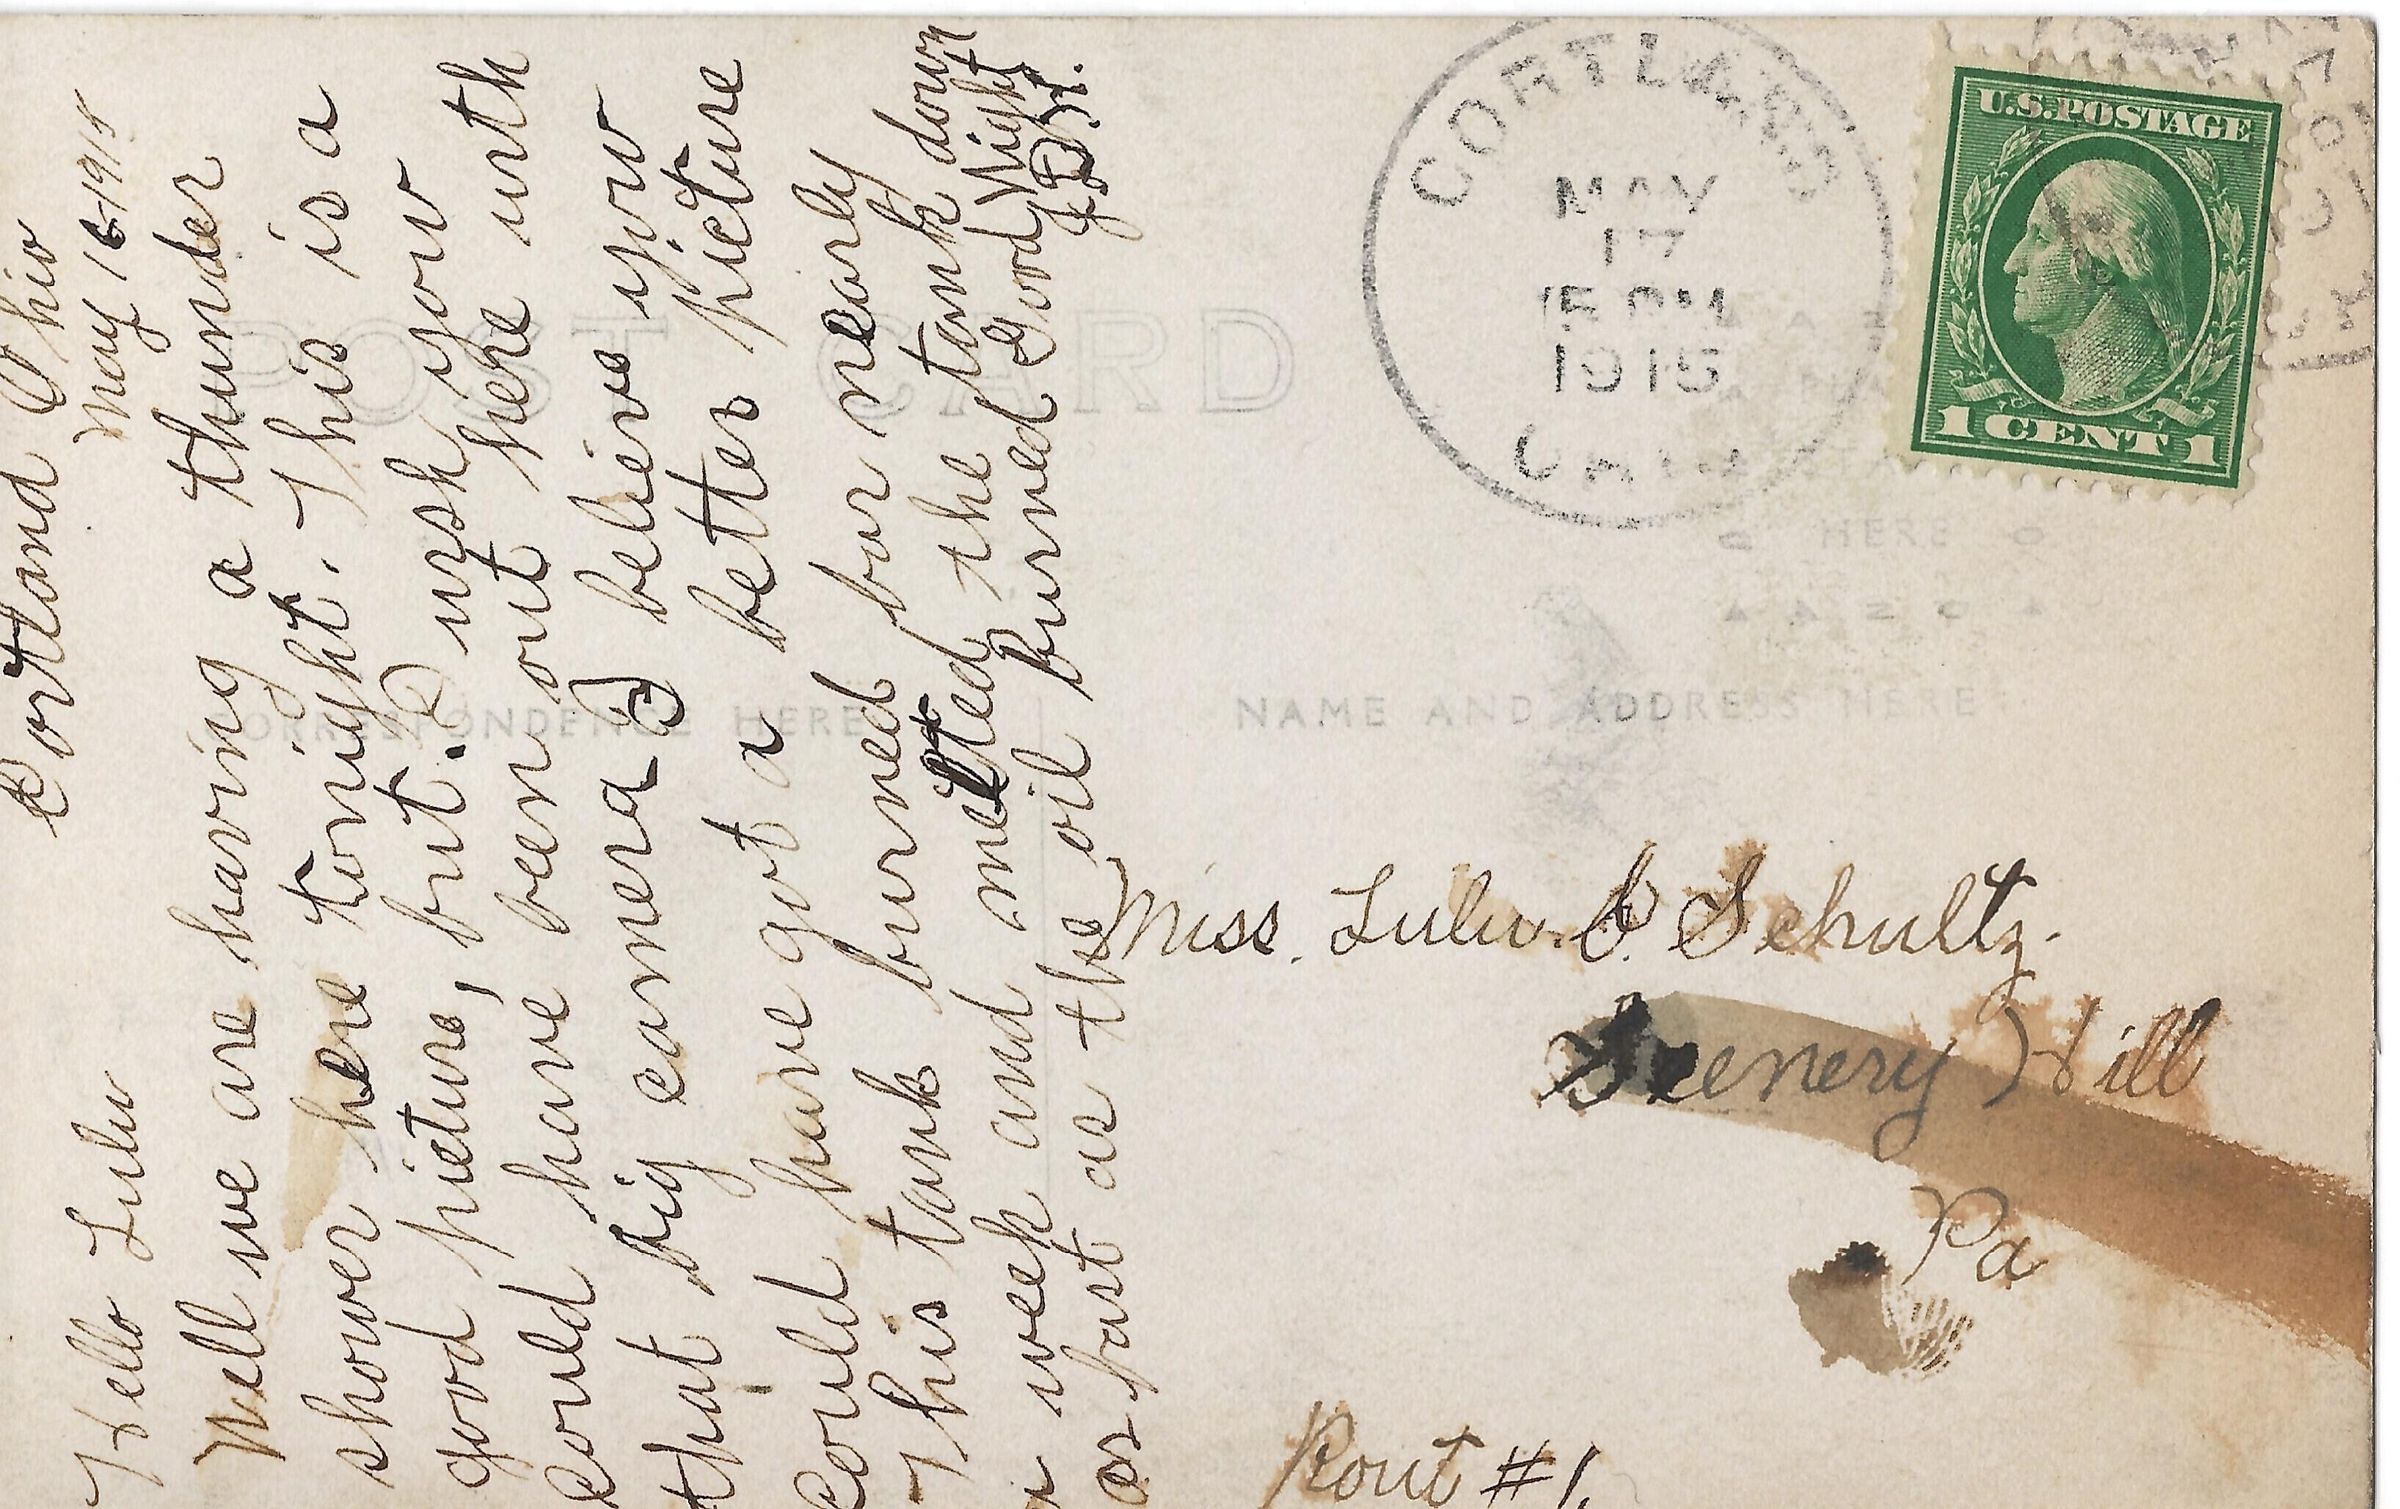 Cortland Ohio
May 16-1915
Hello Lulu
Well we are having a thunder
shower here tonight. This is a
good picture, but I wish you
could have been out here with
that big camera I believe you
could have got a better picture
This tank burned for nearly
a week and melted the tank down
as fast as the oil burned Good Night
POST CARD
CORRESPONDENCE HERE
NAME AND ADDRESS HERE
CORTLAND
MAY
17
5 PM
1915
OHIO
U.S. POSTAGE
1 CENT 1
HERE
Miss. Lulu. C. Schultz.
Scenery Hill
Pa
Rout #1.